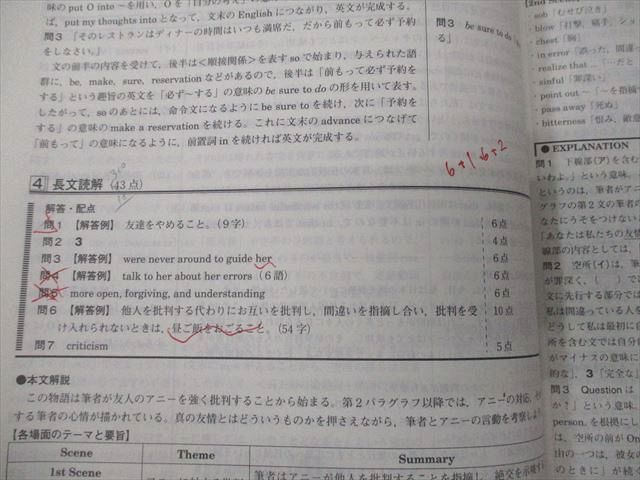 味の put O into ~を用い、Oを「自分の考え」の意
ば、put my thoughts into となって、文末の English につながり、英文が完成する。
問3 「そのレストランはディナーの時間はいつも満席だ、だから前もって必ず予約
をしなさい。」
文の前半の内容を受けて、後半は<順接関係>を表す so で始まり、与えられた語
群に、be, make, sure, reservation などがあるので、後半は「前もって必ず予約を
する」という趣旨の英文を「必ず~する」の意味の be sure to do の形を用いて表す。
したがって、so のあとには、命令文になるように be sure to を続け、次に「予約を
する」の意味の make a reservation を続ける。これに文末の advance につなげて
「前もって」の意味になるように、前置詞 in を続ければ英文が完成する。
問3 be sure to do
る」
6+1.6+2
4 長文読解 (43点)
解答・配点
問1 【解答例】 友達をやめること。(9字) 6点
問2 3 4点
問3 【解答例】 were never around to guide her 6点
問4 【解答例】 talk to her about her errors (6語) 6点
問5 more open, forgiving, and understanding 6点
問6 【解答例】 他人を批判する代わりにお互いを批判し、間違いを指摘し合い、批判を受 10点
け入れられないときは、昼ご飯をおごること。(54字)
問7 criticism 5点
●本文解説
この物語は筆者が友人のアニーを強く批判することから始まる。第2パラグラフ以降では、アニーの対応、
する筆者の心情が描かれている。真の友情とはどういうものかを押さえながら、筆者とアニーの言動を考察しよ
【各場面のテーマと要旨】
Scene Theme Summary
1st Scene 筆者はアニーが他人を批判することを指摘し、絶交を示唆す
・sob「むせび泣き」
・blow「打撃、痛手、ショ
・chest「胸」
・in error「誤った、間違っ
・realize that ... 「…だと
・sinful「罪深い」
・point out ~「~を指摘す
・pass away「死ぬ」
・bitterness「恨み、敵意
● EXPLANATION
問1 下線部(ア)を含む
いわよ。」という意味。
というのは、筆者がア
グラフの第2文の筆者の
なたにうそをつけない
「あなたは私たちの友情
線部の内容としては、
問2 空所(イ)は、筆者
が罪深く、( )で
文に先行する部分では
私は間違っている人を
どうして私は最初に
所を含む文では自分
がマイナスの意味に
的な」、3「完全な」
問3 Question は
か？」という意味。
person. を根拠にし
は、空所の前が On
th の一つは、彼女の
のときに」が続く